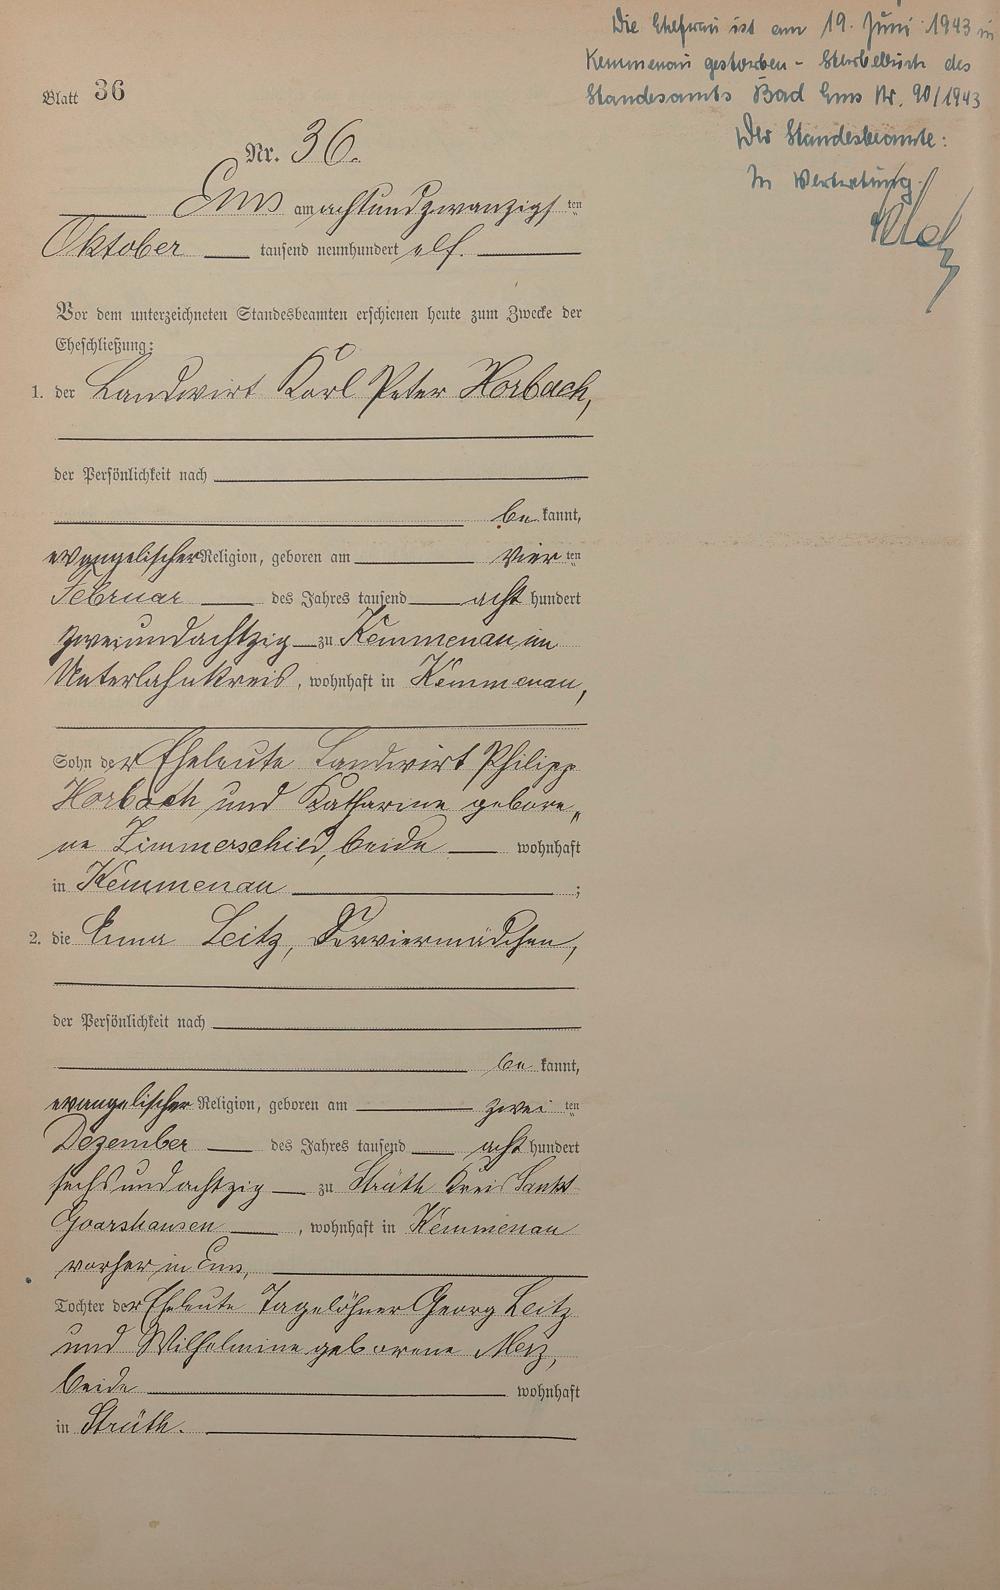 Die Ehefrau ist am 19. Juni 1943 in
Kemmenau gestorben - Sterbebuch des
Standesamts Bad Ems Nr. 90/1943
Der Standesbeamte:
In Vertretung.
Blatt 36
Nr. 36.
Ems am achtundzwanzigsten
Oktober tausend neunhundert elf.
Vor dem unterzeichneten Standesbeamten erschienen heute zum Zwecke der
Eheschließung:
1. der Landwirt Karl Peter Horbach,
der Persönlichkeit nach
be kannt,
evangelischer Religion, geboren am vier ten
Februar des Jahres tausend acht hundert
zweiundachtzig zu Kemmenau im
Unterlahnkreis, wohnhaft in Kemmenau,
Sohn der Eheleute Landwirt Philipp
Horbach und Katharine gebore„
ne Zimmerschied, beide wohnhaft
in Kemmenau ;
2. die Anna Leitz, Serviermädchen,
der Persönlichkeit nach
be kannt,
evangelischer Religion, geboren am zwei ten
Dezember des Jahres tausend acht hundert
sechsundachtzig zu Strüth Kreis Sankt
Goarshausen , wohnhaft in Kemmenau
vorher in Ems,
Tochter der Eheleute Tagelöhner Georg Leitz
und Wilhelmine geborene Merz,
beide wohnhaft
in Strüth.